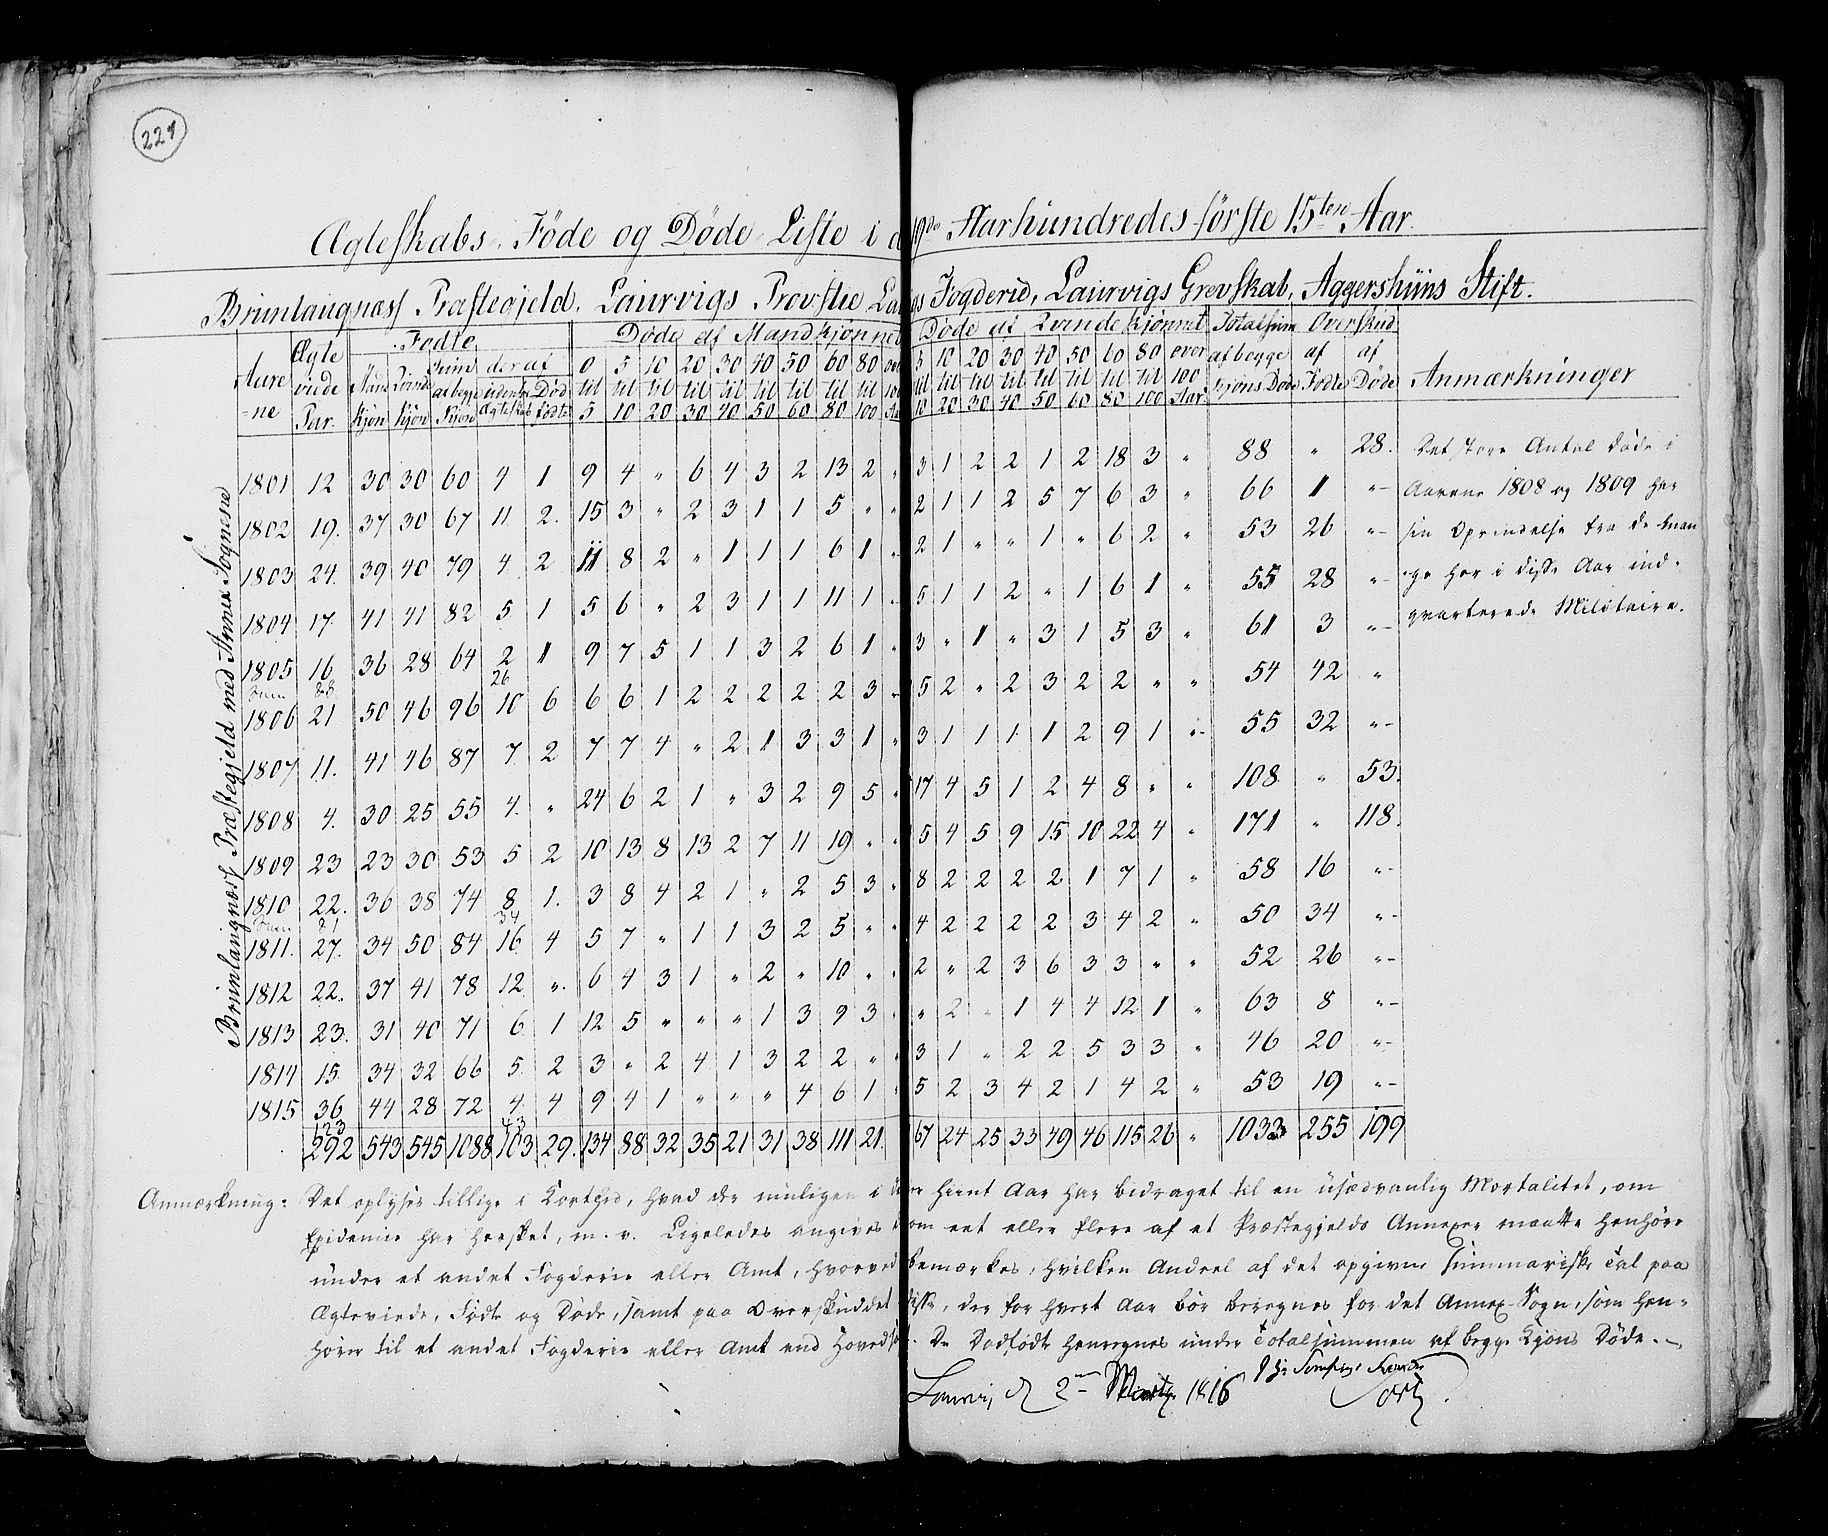 229
Ægteskabs. Føde og Døde Liste i d 19de Aarhundredes første 15ten Aar.
Brunlaugnæss Præstegjeld, Laurvigs Provstie Lau gs Fogderie, Laurvigs Grevskab, Aggershuus Stift.
Brunlaugnæss Præstegjeld med Annex Sognene
Aarene | Ægteviede Par. | Fødte | Døde af Mandkjønnet | Døde af Qvindekjønnet | Totalsum | Overskud | Anmærkninger
Mandkjøn | Qvindekjøn | Summa af begge Kjøn | deraf udenfor Ægteskab | Dødfødte | 0 til 5 | 5 til 10 | 10 til 20 | 20 til 30 | 30 til 40 | 40 til 50 | 50 til 60 | 60 til 80 | 80 til 100 | over 100 Aar | 5 til 10 | 10 til 20 | 20 til 30 | 30 til 40 | 40 til 50 | 50 til 60 | 60 til 80 | 80 til 100 | over 100 Aar. | af begge Kjøns Døde | af Fødte | af Døde
1801 12 30 30 60 4 1 9 4 " 6 4 3 2 13 2 " 3 1 2 2 1 2 18 3 " 88 " 28.
1802 19. 37 30 67 11 2. 15 3 " 2 3 1 1 5 " " 2 1 1 2 5 7 6 3 " 66 1 "
1803 24. 39 40 79 4 2 11 8 2 " 1 1 1 6 1 " 2 1 " " 1 " 6 2 " 53 26 "
1804 17. 41 41 82 5 1 5 6 " 2 3 1 1 11 1 " 5 1 1 2 " 1 6 1 " 55 28 "
1805 16 36 28 64 2 1 9 7 5 1 1 3 2 6 1 " 3 " 1 " 3 1 5 3 " 61 3 "
Sum 88 26
1806 21 50 46 96 10 6 6 6 1 2 2 2 2 2 3 " 5 2 " 2 3 2 2 " " 54 42 "
1807 11. 41 46 87 7 2 7 7 4 " 2 1 3 3 1 " 3 1 1 1 1 2 9 1 " 55 32 "
1808 4. 30 25 55 4. " 24 6 2 1 " 3 2 9 5 " 17 4 5 1 2 4 8 " " 108 " 53.
1809 23 23 30 53 5 2 10 13 8 13 2 7 11 19 " " 5 4 5 9 15 10 22 4 " 171 " 118.
1810 22. 36 38 74 8 1. 3 8 4 2 1 " 2 5 3 " 8 2 2 2 2 1 7 1 " 58 16 "
Sum 81 34
1811. 27. 34 50 84 16 4 5 7 " 1 1 3 2 5 " " 4 2 2 2 2 3 4 2 " 50 34 "
1812 22. 37 41 78 12 " 6 4 3 1 " 2 " 10 " " 2 " 2 3 6 3 3 " " 52 26 "
1813 23. 31 40 71 6 1 12 5 " " " 1 3 9 3 " " 2 " 1 4 4 12 1 " 63 8 "
1814 15. 34 32 66 5 2 3 " 2 4 1 3 2 2 " " 3 1 " 2 2 5 3 3 " 46 20 "
1815 36 44 28 72 4 4 9 4 1 " " " 4 6 1 " 5 2 3 4 2 1 4 2 " 53 19 "
123 43
292 543 545 1088 103 29. 134 88 32 35 21 31 38 111 21 67 24 25 33 49 46 115 26 " 1033 255 199
Det store Antal Døde i
Aarene 1808 og 1809 har
sin Oprindelse fra de man
ge her i disse Aar ind-
qvarterede Militaire.
Anmærkning: Det oplyses tillige i Korthed, hvad der muligen i et eller hiint Aar har bidraget til en usædvanlig Mortalitet, om
Epidemie har hersket, m. v. Ligeledes angives om eet eller flere af et Præstegjelds Annexer maatte henhøre
under et andet Fogderie eller Amt, hvorved bemærkes, hvilken Andeel af det opgivne summariske Tal paa
Ægteviede, Fødte og Døde, samt paa Overskuddet disse, der for hvert Aar bør beregnes for det Annex-Sogn, som hen-
hører til et andet Fogderie eller Amt end Hoveds . De Dødfødte henregnes under Totalsummen af begge Kjøns Døde.
Laurvig d 2den Martz 1816